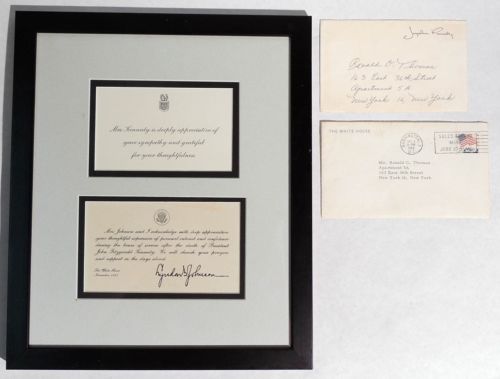 Mrs. Kennedy is deeply appreciative of
your sympathy and grateful
for your thoughtfulness
Mrs. Johnson and I acknowledge with deep appreciation
your thoughtful expression of personal interest and confidence
during the hours of sorrow after the death of President
John Fitzgerald Kennedy. We will cherish your prayers
and support in the days ahead.
The White House
November, 1963
Lyndon B. Johnson
Ronald O. Thomas
163 East 36th Street
Apartment 5A
New York 16, New York
THE WHITE HOUSE
Mr. Ronald O. Thomas
Apartment 5A
163 East 36th Street
New York 16, New York